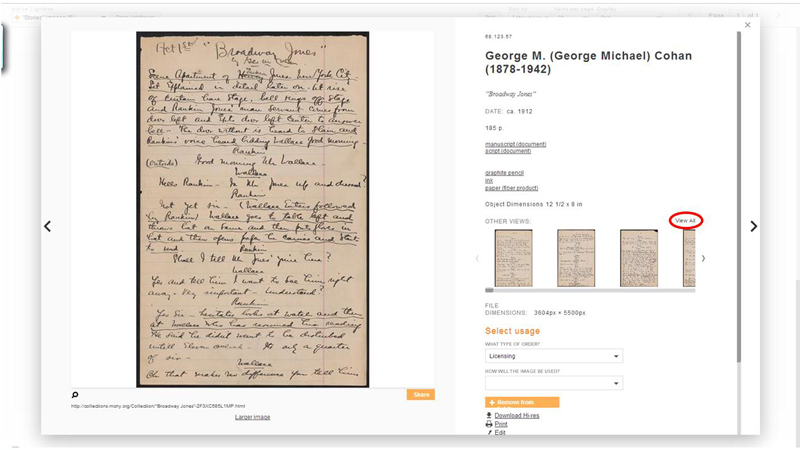 Act 1st "Broadway Jones"
Scene Apartment of Jones New York City.
Set explained in detail later on. At rise
of curtain bare stage, bell rings off stage
and Rankin Jones' man servant comes from
door left and exits door left center to answer
bell - The door without is heard to slam and
Rankin's voice heard bidding Wallace good morning -
Rankin
(outside) Good morning Mr Wallace -
Wallace
Hello Rankin - Is Mr Jones up and dressed?
Rankin
Not yet sir - (Wallace Enters followed
by Rankin) Wallace goes to table left and
throws hat on same and then puts gloves in
hat and then opens paper he carries and starts
to read.
Rankin
Shall I tell Mr Jones you're here?
Wallace
Yes and tell him I want to see him right
away - Very important - Understand?
Rankin
Yes Sir - hesitates looks at watch and then
at Wallace who has resumed his reading
He said he didn't want to be disturbed
until Eleven - Its only a quarter
of sir -
Wallace
Oh that makes no difference you tell him
http://collections.mcny.org/Collection/"Broadway Jones"-2F3XC585L1MP.html
Share
Larger Image
68.123.57
George M. (George Michael) Cohan
(1878-1942)
"Broadway Jones"
DATE: ca. 1912
185 p.
manuscript (document)
script (document)
graphite pencil
ink
paper (fiber product)
Object Dimensions 12 1/2 x 8 in
OTHER VIEWS:
View All
FILE
DIMENSIONS: 3604px × 5500px
Select usage
WHAT TYPE OF ORDER?
Licensing
HOW WILL THE IMAGE BE USED?
Remove from
Download Hi-res
Print
Edit